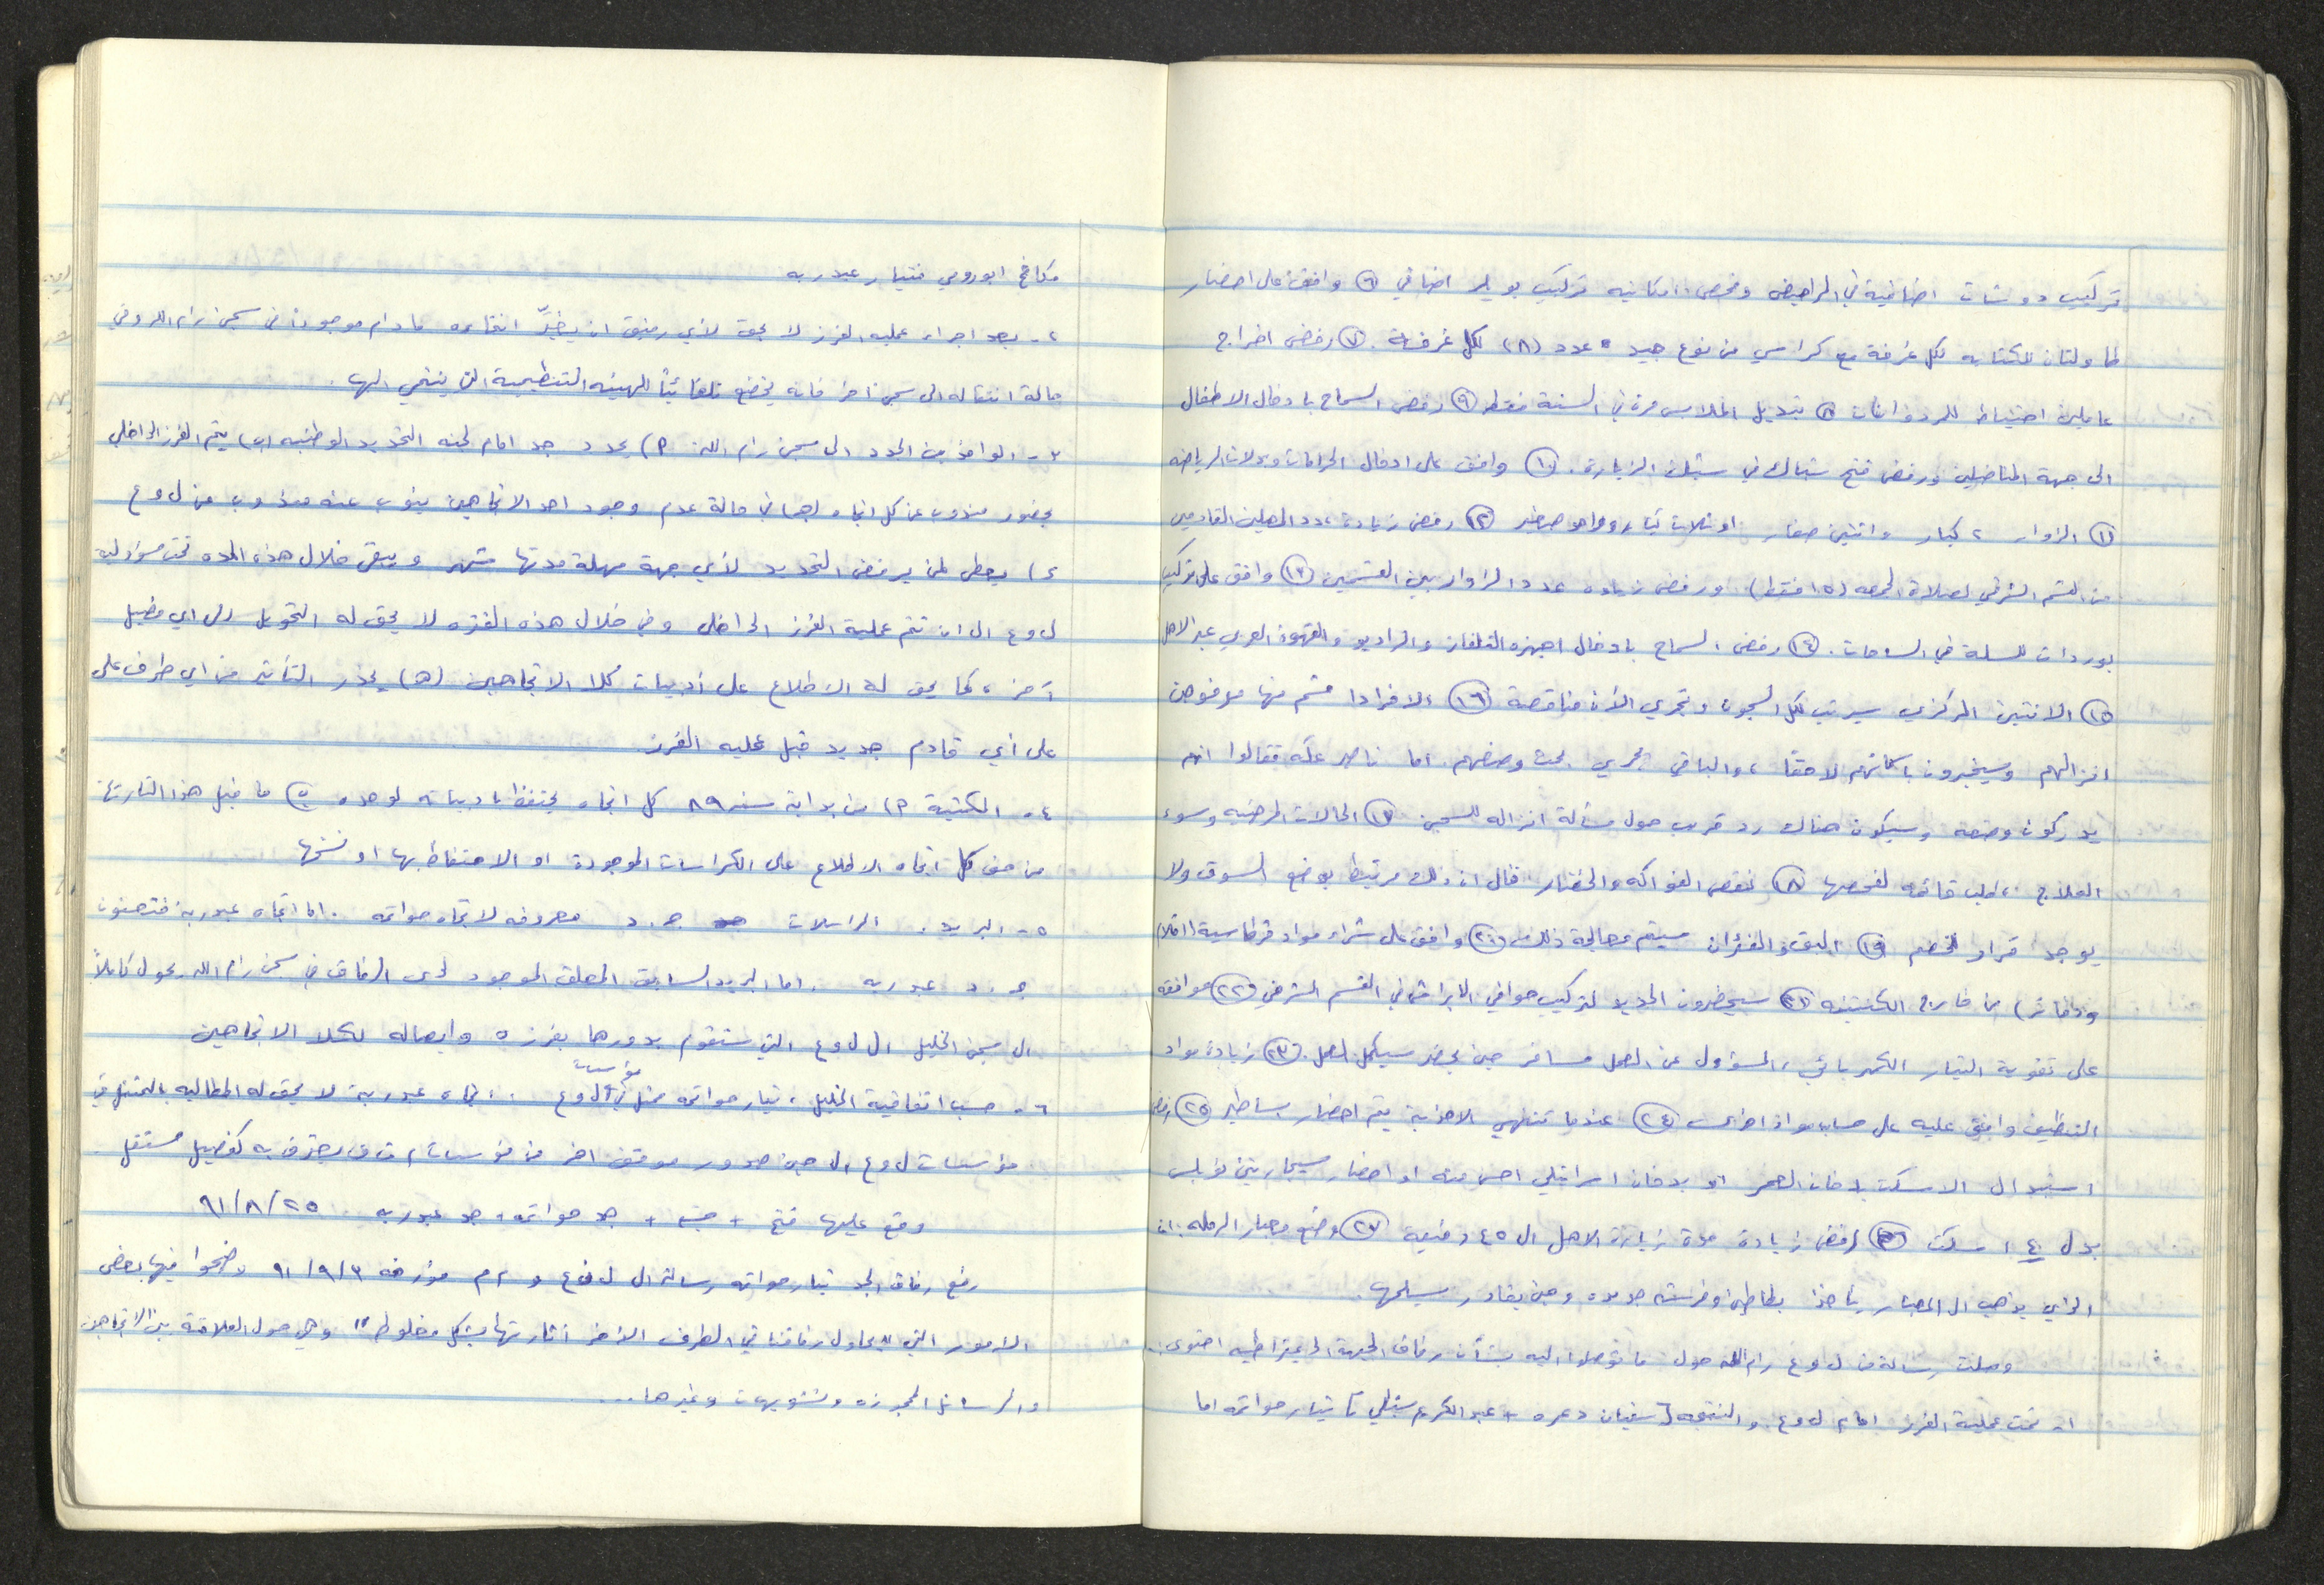 تركيب دوشات اضافية في المراحيض وفحص امكانيه تركيب بويلر اضافي ٦ وافق على احضار
طاولتان للكتابه لكل غرفة مع كراسي من نوع جيد عدد (٨) لكل غرفة. ٧ رفض اخراج
عاملين احتياط للمردوانات ٨ تبديل الملابس مرة في السنة فقط ٩ رفض السماح بادخال الاطفال
الى جهة المناضلين ورفض فتح شباك في شبك الزيارة. ١٠ وافق على ادخال الحرامات وبدلات الرياضه
١١ الزوار ٢ كبار واثنين صغار او ثلاث كبار وواحد صغير ١٢ رفض زيادة عدد المصلين القادمين
من القسم الشرقي لصلاة الجمعه (١٥ فقط) ورفض زياده عدد الزوار بين القسمين ١٣ وافق على تركيب
بوردات للسلة في الساحات. ١٤ رفض السماح بادخال اجهزه التلفاز والراديو والقهوة العربي عبر الاهل
١٥ الانتين المركزي سيرتب لكل السجون وتجري الآن مناقصة ١٦ الافرادا قسم منها مرفوض
انزالهم وسيخبرون باسمائهم لاحقا، والباقي يجري بحث وضعهم. اما ناصر عكه فقالوا انهم
يدركون وضعه وسيكون هناك رد قريب حول مسألة انزاله للسجن ١٧ الحالات المرضيه وسوء
العلاج، طلب قائمه لفحصها ١٨ نقص الفواكه والخضار قال ان ذلك مرتبط بوضع السوق ولا
يوجد قرار للخصم ١٩ البق والفئران سيتم معالجة ذلك ٢٠ وافق على شراء مواد قرطاسية (اقلام
ودفاتر) من خارج الكنتينه ٢١ سيحضرون الحديد لتركيب حوافي الابراش في القسم الشرقي ٢٢ موافقه
على تقوية التيار الكهربائي، المسؤول عن العمل مسافر حين يحضر سيكمل العمل. ٢٣ زيادة مواد
التنظيف وافق عليه على حساب مواد اخرى ٢٤ عندما تنتهي الاحذية يتم احضار بساطير ٢٥ رفض
استبدال الاسكت بدخان العمر او بدخان اسرائيلي احسن منه او احضار سيجارتين نوبلس
بدل ٤ اسكت ٢٦ رفض زيادة مدة زيارة الاهل الى ٤٥ دقيقة ٢٧ وضع معبار الرمله: ان
الذي يذهب الى المعبار يأخذ بطاطين وفرشه جديده وحين يغادر يسلمها.
وصلت رسالة من ل و ع رام الله حول ما توصلوا اليه بشأن رفاق الجبهة الديمقراطيه احتوى:
١- تمت عملية الفرز امام ل و ع والنتيجه سفيان دعره + عبد الكريم شبلي تيار حواتمه اما
مكافح ابورومي فتيار عبدربه
٢- بعد اجراء عمليه الفرز لا يحق لأي رفيق ان يغيّر انتماءه ما دام موجوداً في سجن رام الله وفي
حالة انتقاله الى سجن آخر فانه يخضع تلقائياً للهيئه التنظيمية التي ينتمي اليها.
٣- الوافدين الجدد الى سجن رام الله: أ) يحدد جد امام لجنه التحديد الوطنيه ب) يتم الفرز الداخلي
بحضور مندوب عن كل اتجاه لهما في حالة عدم وجود احد الاتجاهين ينوب عنه مندوب من ل و ع
ج) يعطى لمن يرفض التحديد لأي جهة مهلة مدتها شهر ويبقى خلال هذه المده تحت مسؤوليه
ل و ع الى ان تتم عملية الفرز الداخلي وفي خلال هذه الفتره لا يحق له التحويل الى اي فصيل
آخر، كما يحق له الاطلاع على أدبيات كلا الاتجاهين (د) يحذر التأثير من اي طرف على
على أي قادم جديد قبل عمليه الفرز
٤- المكتبة أ) من بداية سنه ٨٩ كل اتجاه يحتفظ بادبياته لوحده ب) ما قبل هذا التاريخ
من حق كل اتجاه الاطلاع على الكراسات الموجودة او الاحتفاظ بها او نسخها
٥- البريد: المراسلات ج. د معروفه لاتجاه حواتمه. اما اتجاه عبدربه فتعنون
ج. د عبدربه. اما البريد السابق المعلق الموجود لدى الرفاق في سجن رام الله يحول كاملاً
الى سجن الخليل الى ل و ع التي ستقوم بدورها بفرزه وايصاله لكلا الاتجاهين
٦- حسب اتفاقية الخليل، تيار حواتمه ممثل في مؤسسات ل و ع. اتجاه عبدربه لا يحق له المطالبه بالتمثيل في
مؤسسات ل و ع الى حين صدور موقف اخر من مؤسسات م ت ف يعترف به كفصيل مستقل
وقع عليها فتح + جش + جد حواتمه + جد عبدربه ٩١/٨/٢٥
رفع رفاق الجد تيار حواتمه رسالة الى ل و ع و ا م مؤرخه ٩١/٩/٣ وضحوا فيها بعض
الامور التي "يحاول رفاقنا في الطرف الآخر اثارتها بشكل مغلوط" وهي حول العلاقة بين الاتجاهين
والرسائل المحجوزه وتشويهات وغيرها...